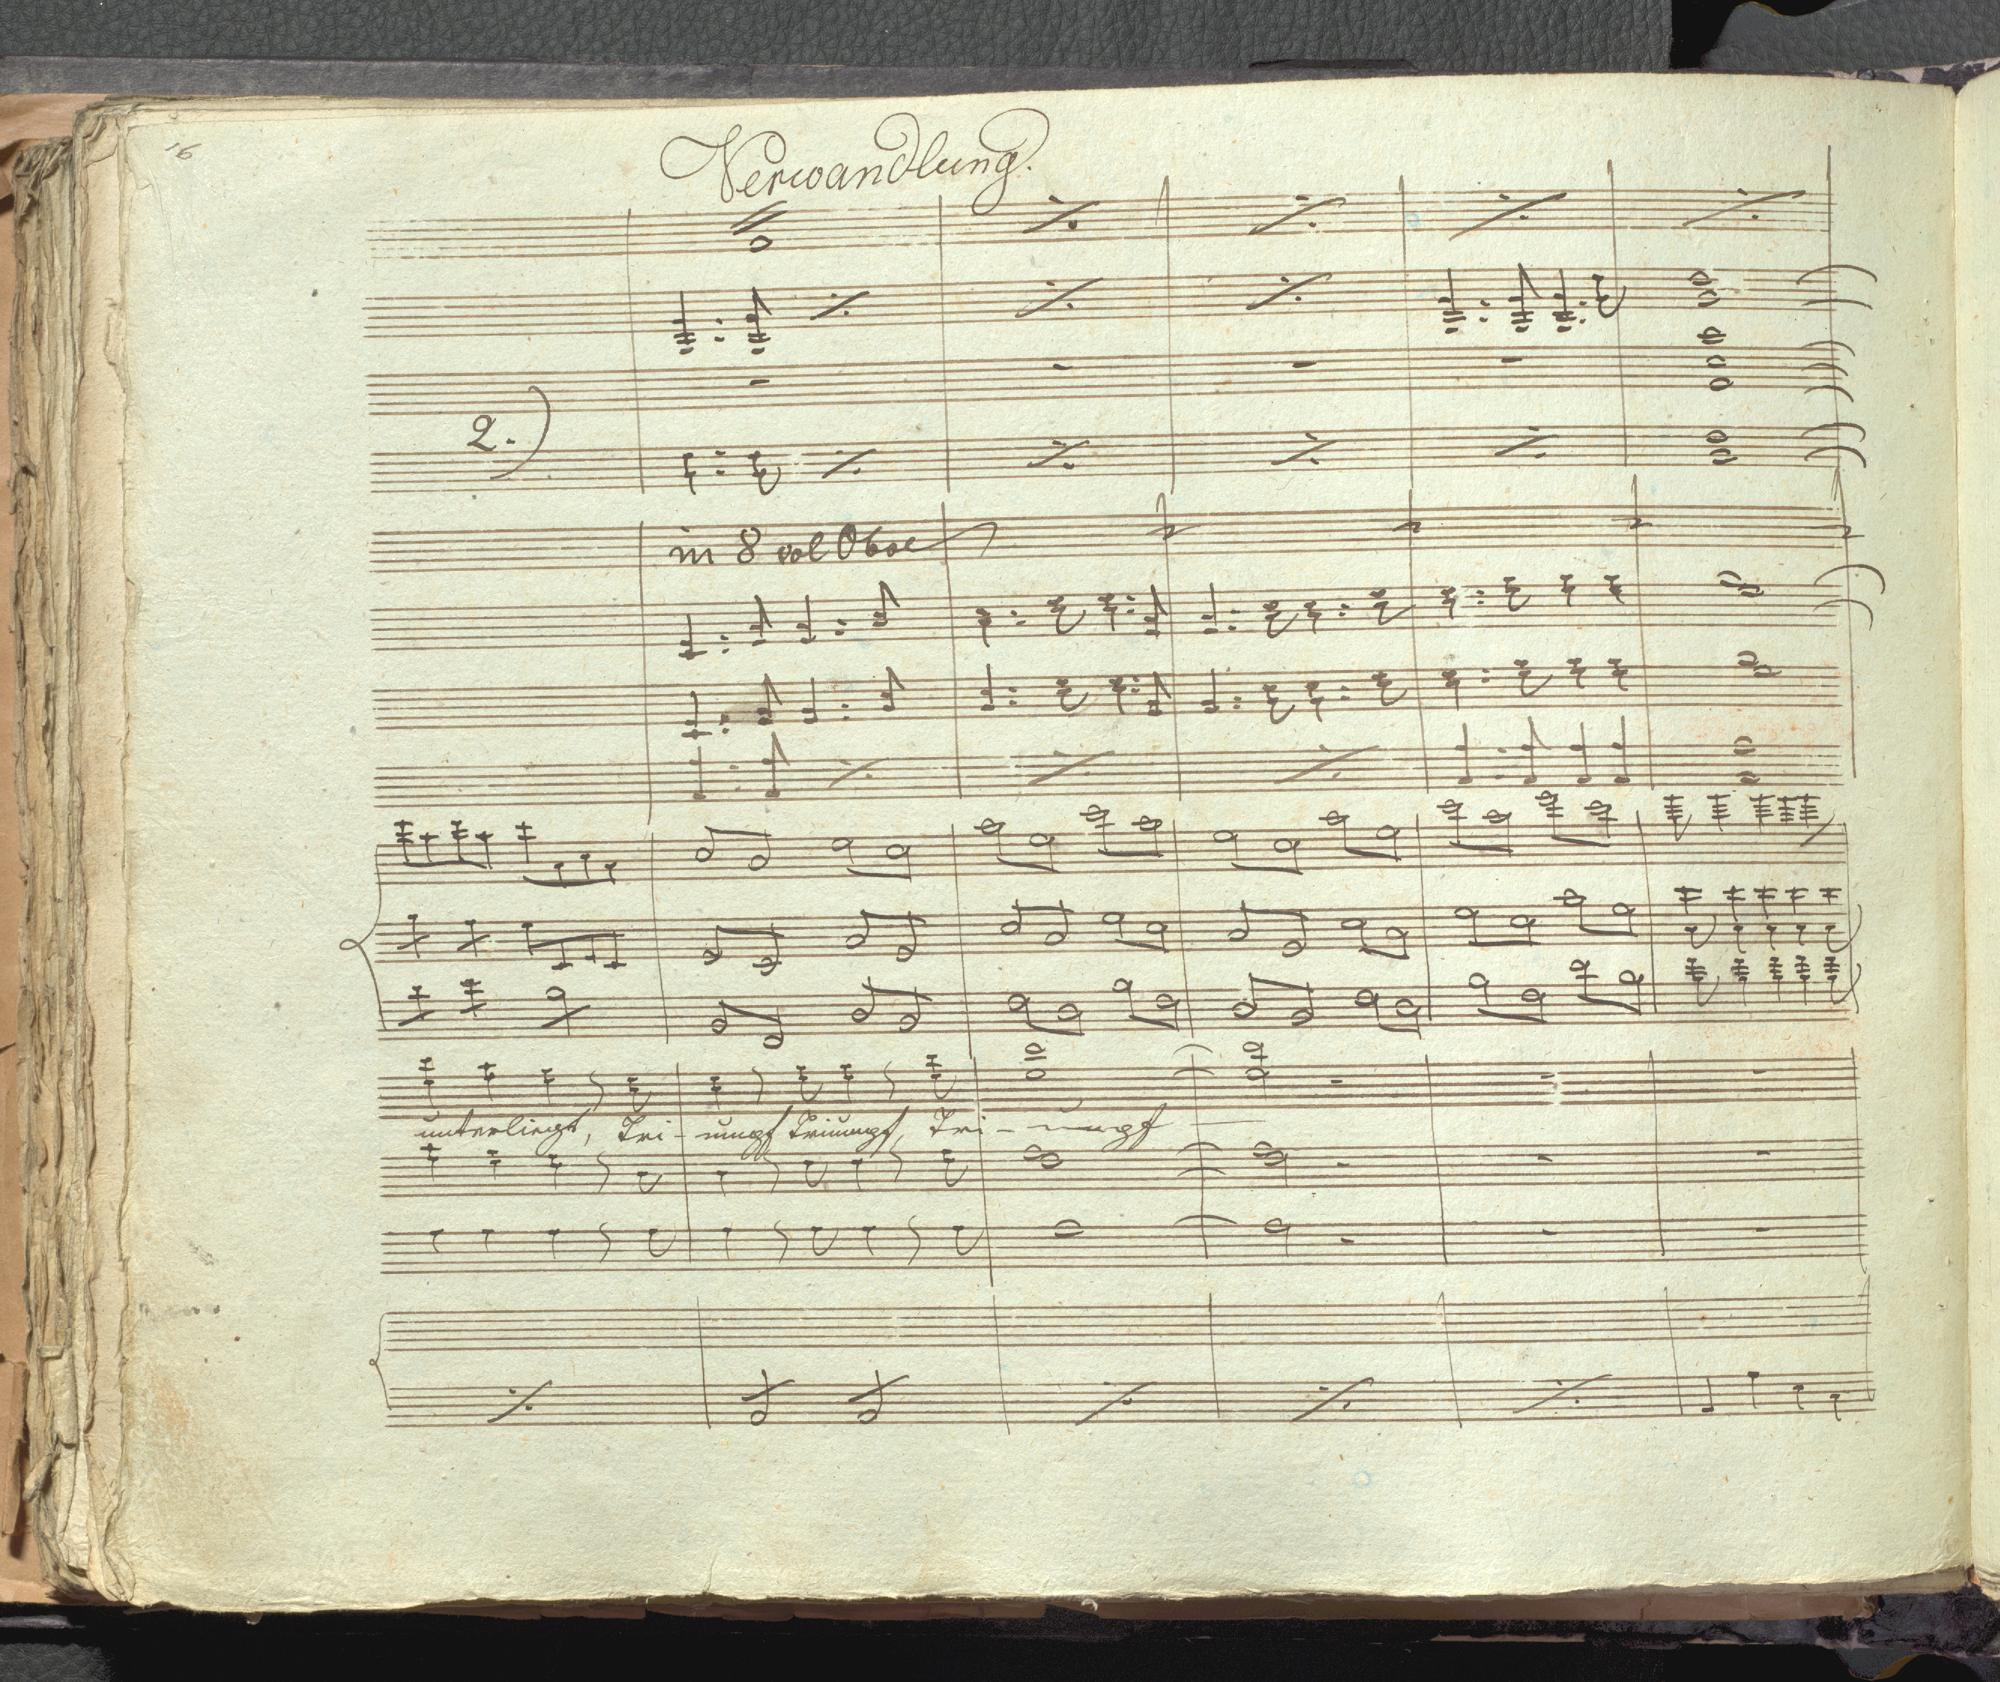 16
Verwandlung.
2.
in 8 col Oboe
unterliegt, Tri-umpf Triumpf, Tri--umpf